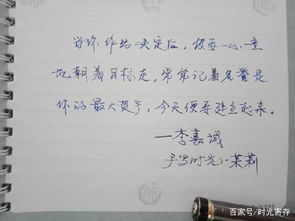 当你作出决定后，便要一心一意
地朝着目标走，常常记着名誉是
你的最大资产，今天便要建立起来。
—李嘉诚
手写时光·茉莉
百家号/时光寄存